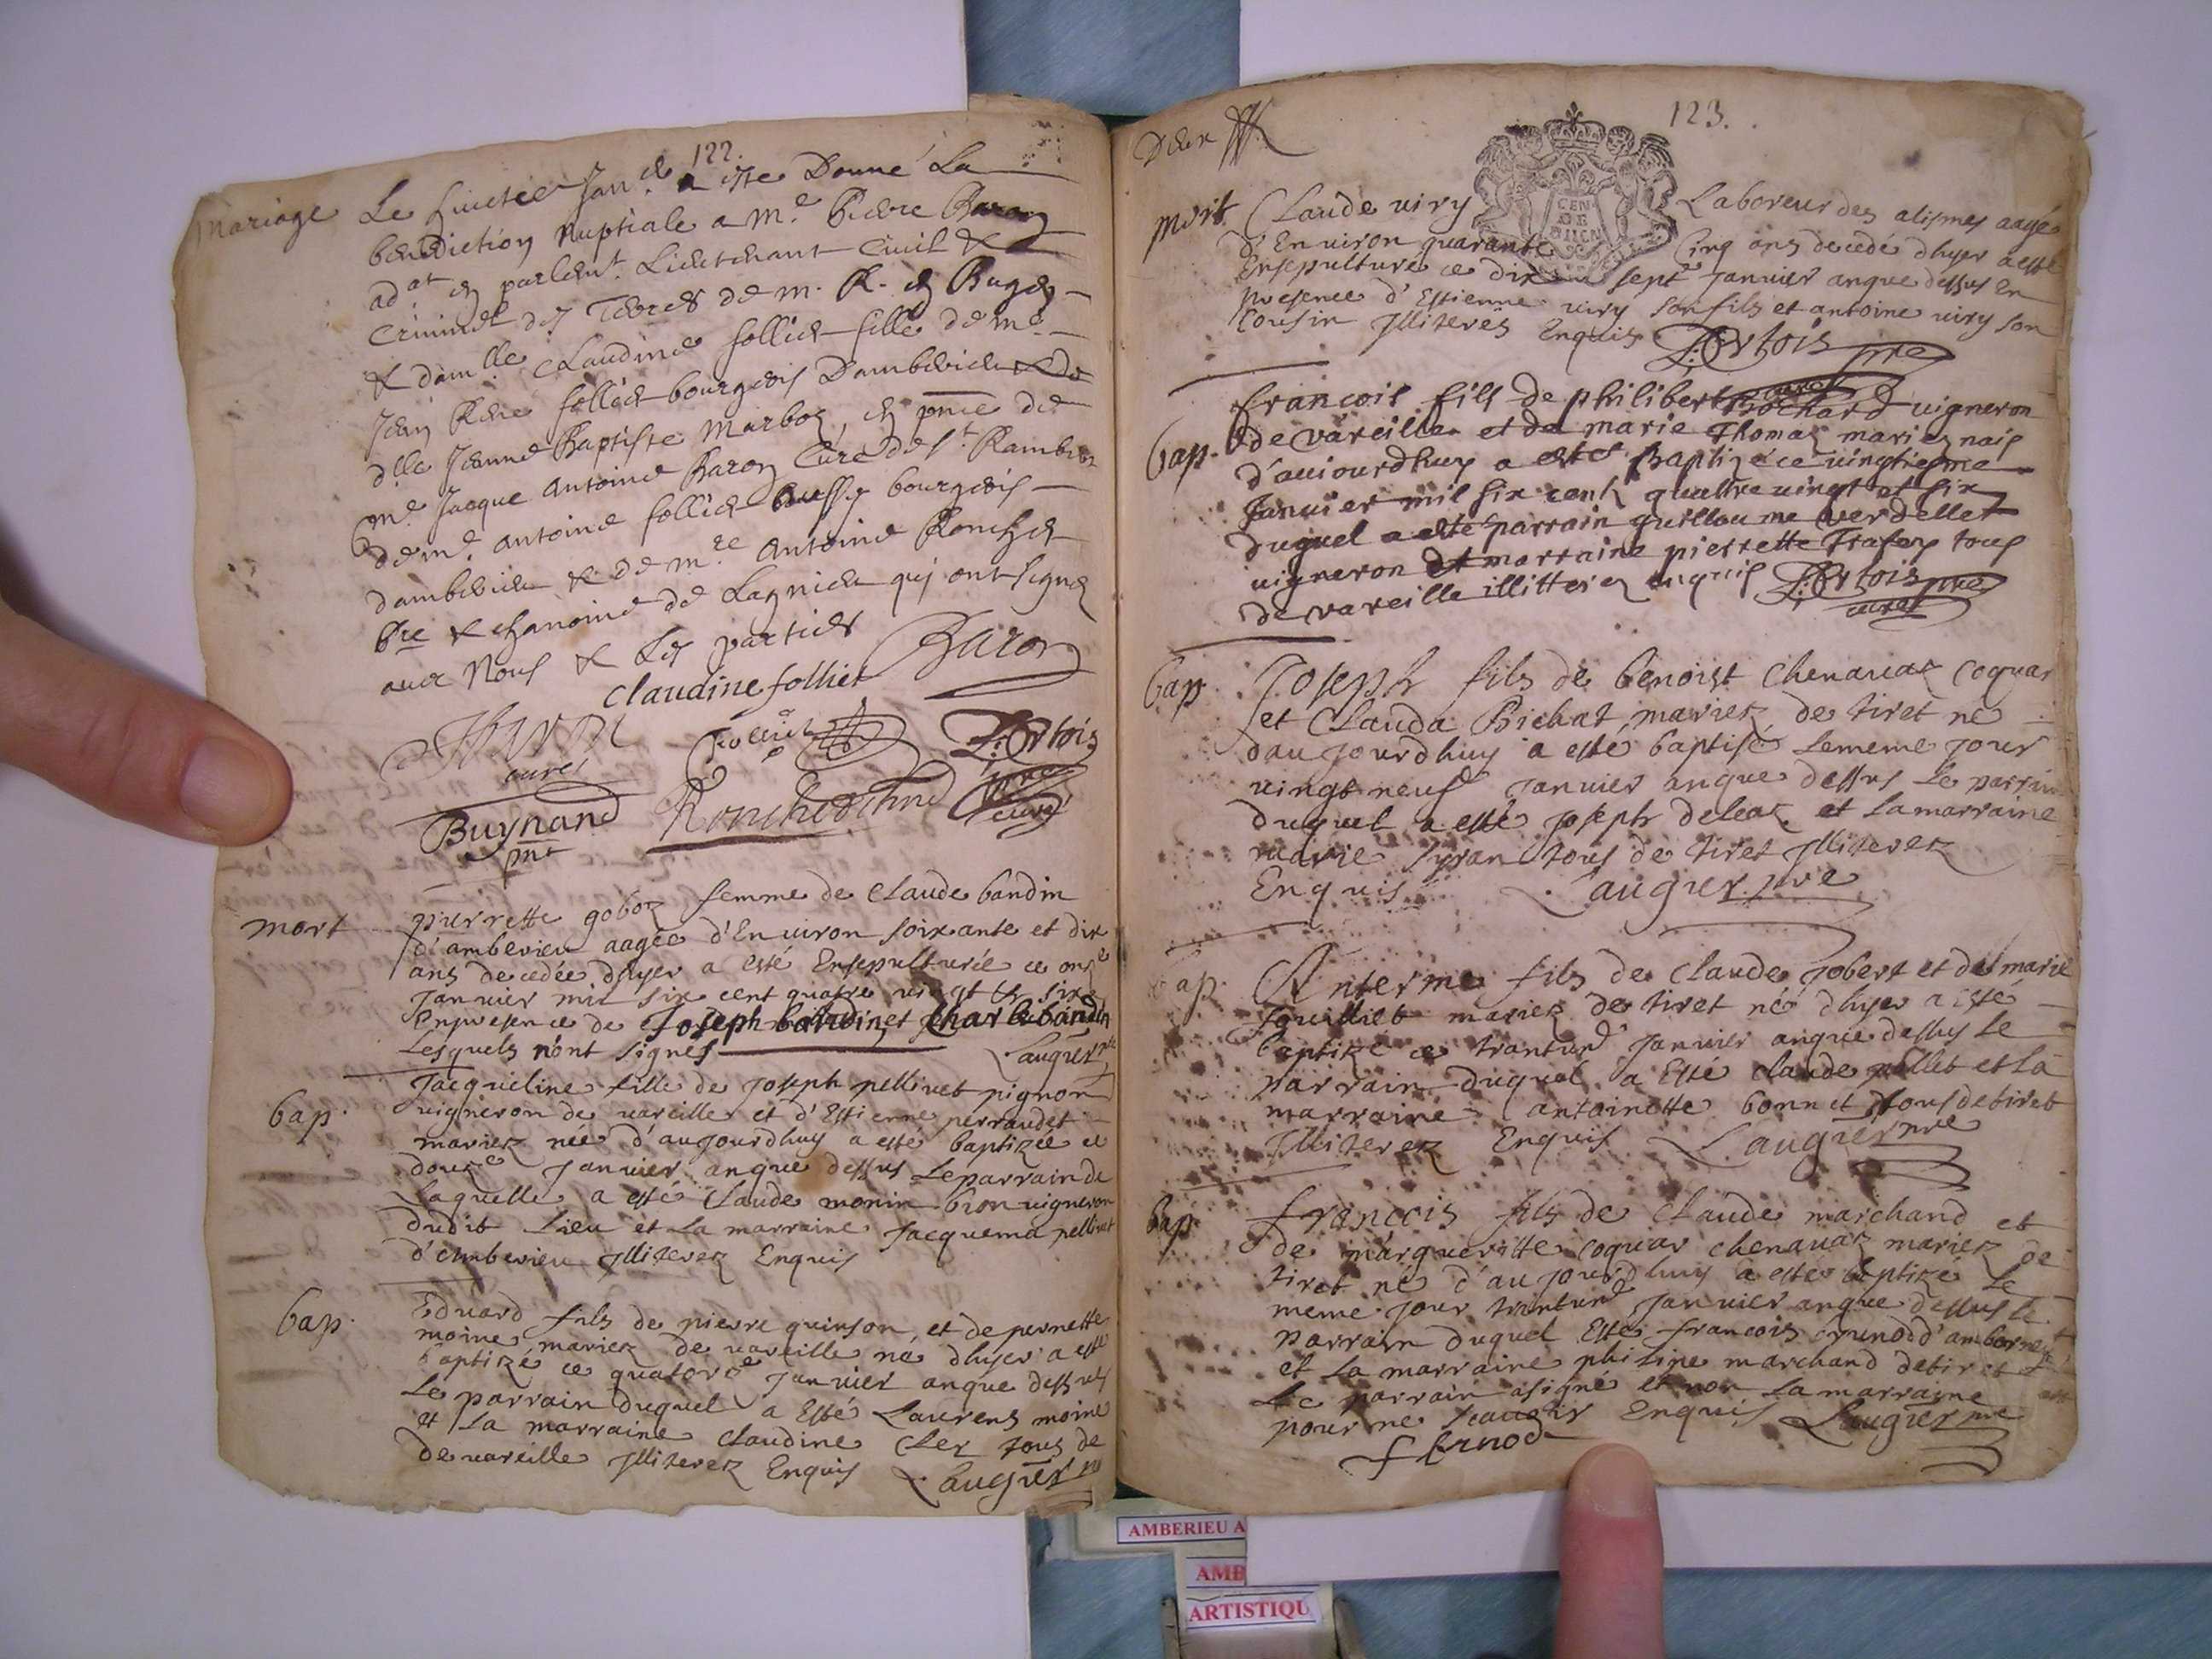 122.
Mariage
Le huictie Janer a este Donné La
benediction Nuptiale a Me. Pierre Baron
adat en parlent. Lieutenant Civil &
Criminel des Terres de m. R. en Bugey
& damlle Claudine folliet fille de me
Jean folliet bourgeois Damberieu & de
dlle Jeanne Baptiste Marboz, en pnce de
me Jacque Antoine Baron Curé de st Rambert
de me. antoine folliet bourgeois
damberieu & de mre antoine Ronchet
bre & chanoine de Lagnieu qui ont signez
avec Nous & Les parties
Baron
Claudine folliet
curé
folliet
L: Ortois
pre
curé
Buynand
pnt
mort
pierrette goboz femme de Claude baudin
d'amberieu aagée d'Environ soixante et dix
ans decedée dhyer a esté Ensepulturée ce onze
Janvier mil six cent quatre vingt et six
En presence de Joseph baudin et Charle baudin
Lesquels n'ont signés
Laugier pre
bap.
Jacqueline fille de Joseph pellivet pignon
vigneron de vareille et d'Estienne perraudet
mariez née d'aujourdhuy a esté baptizée ce
douze Janvier anque dessus Le parrain de
Laquelle a esté Claude monin bron vigneron
dudit Lieu et La marraine Jacquema pellivet
d'Amberieu Illiterez Enquis
bap.
Eduard fils de pierre quinson, et de pernette
moine mariez de vareille né dhyer a esté
baptizé ce quatorze Janvier anque dessus
Le parrain duquel a Esté Laurens moine
et La marraine Claudine Cler tous de
de vareille Illiterez Enquis Laugier pre
123.
Deux
mort.
Claude viry Laboreur des alismes aagé
d'Environ quarante Cinq ans decedé dhyer a esté
Ensepulturé ce dix sept Janvier anque dessus En
presence d'Estienne viry son fils et antoine viry son
Cousin Illiterés Enquis L: Ortois pre
curé
bap.
francois fils de philibert Bochard vigneron
de vareille et de marie Thomaz mariez nais
d'aujourdhuy a esté Baptizé ce vingtiesme
Janvier mil six centz quattre vingt et six
duquel a esté parrain guilloume verdellet
vigneron et marraine pierrette Trafey tous
de vareille illitterez enquis L: Ortois pre
curé
bap.
Joseph fils de benoist Chenavaz coquar
et Clauda Bichat mariez de tiret né
daujourdhuy a esté baptisé Lememe jour
vingt neuf Janvier anque dessus Le parrin
duquel a esté Joseph deleaz et la marraine
marie Syran tous de tiret Illiterez
Enquis Laugier pre
bap.
Anterme fils de Claude Jobert et de marie
mariez de tiret né dhyer a esté
baptizé ce trantune Janvier anque dessus le
parrain duquel a Esté Claude pollet et La
marraine antoinette bonnet tous de tiret
Illiterez Enquis Laugier pre
bap.
francois fils de Claude marchand et
de margueritte coquar chenavaz mariez de
tiret né d'aujourdhuy a esté baptizé Le
meme jour trantune Janvier anque dessus le
parrain duquel Esté francois brunod d'ambornet
et La marraine philine marchand de tiret
Le parrain a signé et non La marraine
pour ne scavoir Enquis Laugier pre
AMBERIEU A
AMB
ARTISTIQU